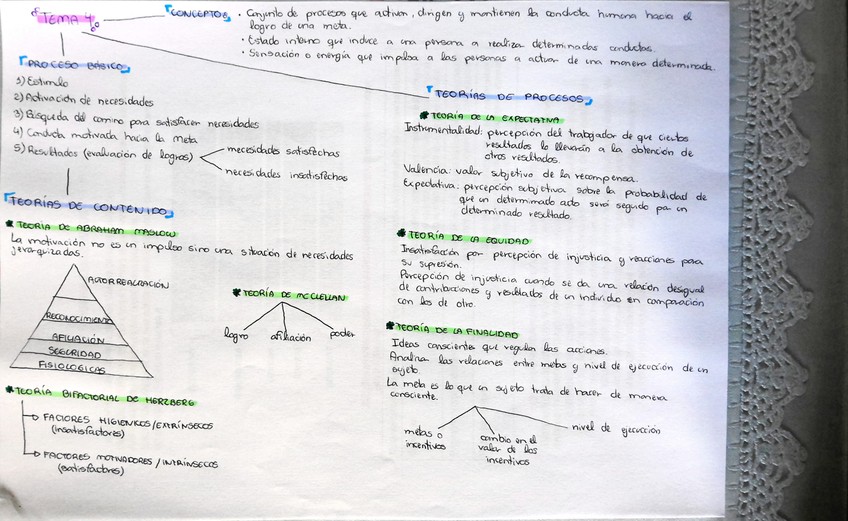 TEMA 4
CONCEPTOS
· Conjunto de procesos que activan, dirigen y mantienen la conducta humana hacia el
logro de una meta.
· Estado interno que induce a una persona a realizar determinadas conductas.
· Sensación o energía que impulsa a las personas a actuar de una manera determinada.
PROCESO BÁSICO
1) Estímulo
2) Activación de necesidades
3) Búsqueda del camino para satisfacer necesidades
4) Conducta motivada hacia la meta
5) Resultados (evaluación de logros)
necesidades satisfechas
necesidades insatisfechas
TEORÍAS DE CONTENIDO
* TEORÍA DE ABRAHAM MASLOW
La motivación no es un impulso sino una situación de necesidades
jerarquizadas.
AUTORREALIZACIÓN
RECONOCIMIENTO
AFILIACIÓN
SEGURIDAD
FISIOLÓGICAS
* TEORÍA DE MC CLELLAN
logro
afiliación
poder
* TEORÍA BIFACTORIAL DE HERZBERG
FACTORES HIGIENICOS/EXTRÍNSECOS
(insatisfactores)
FACTORES MOTIVADORES/INTRÍNSECOS
(satisfactores)
TEORÍAS DE PROCESOS
* TEORÍA DE LA EXPECTATIVA
Instrumentalidad: percepción del trabajador de que ciertos
resultados lo llevarán a la obtención de
otros resultados.
Valencia: valor subjetivo de la recompensa.
Expectativa: percepción subjetiva sobre la probabilidad de
que un determinado acto será seguido por un
determinado resultado.
* TEORÍA DE LA EQUIDAD
Insatisfacción por percepción de injusticia y reacciones para
su supresión.
Percepción de injusticia cuando se da una relación desigual
de contribuciones y resultados de un individuo en comparación
con los de otro.
* TEORÍA DE LA FINALIDAD
Ideas conscientes que regulan las acciones.
Analiza las relaciones entre metas y nivel de ejecución de un
sujeto.
La meta es lo que un sujeto trata de hacer de manera
consciente.
metas o
incentivos
cambio en el
valor de los
incentivos
nivel de ejecución